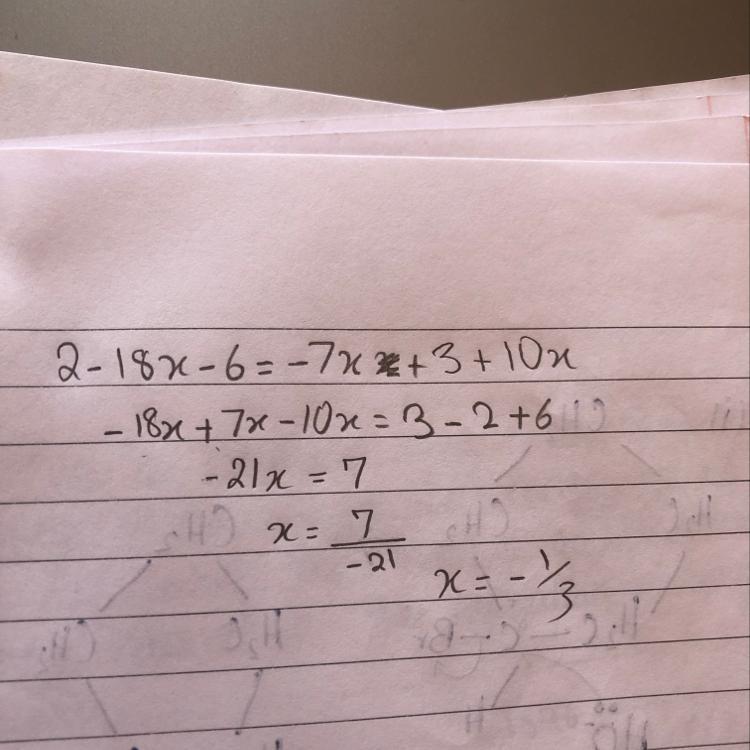 2 - 18x - 6 = -7x + 3 + 10x
-18x + 7x - 10x = 3 - 2 + 6
-21x = 7
x = 7/-21
x = -1/3